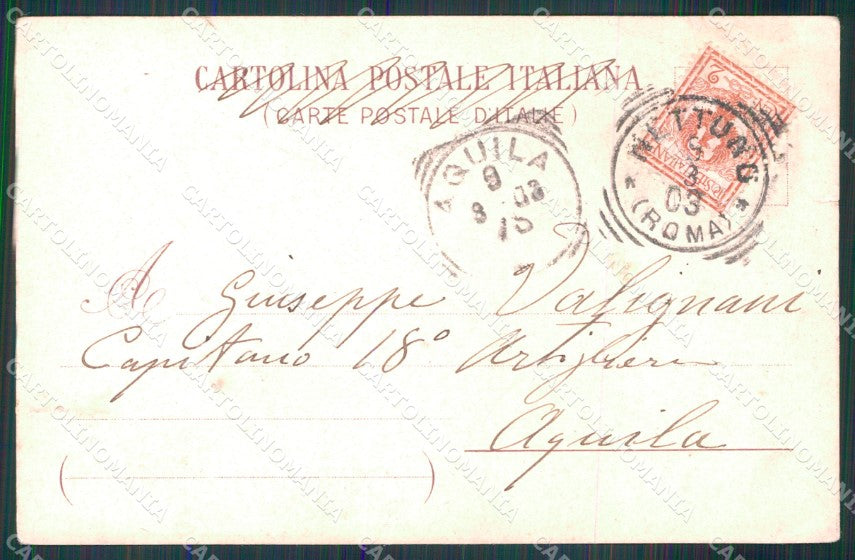 CARTOLINA POSTALE ITALIANA
(CARTE POSTALE D'ITALIE)
AQUILA
9
3 03
15
NETTUNO
8
3
03
(ROMA)
A Giuseppe Valignani
Capitano 18° Artiglieri
Aquila
CARTOLINOMANIA